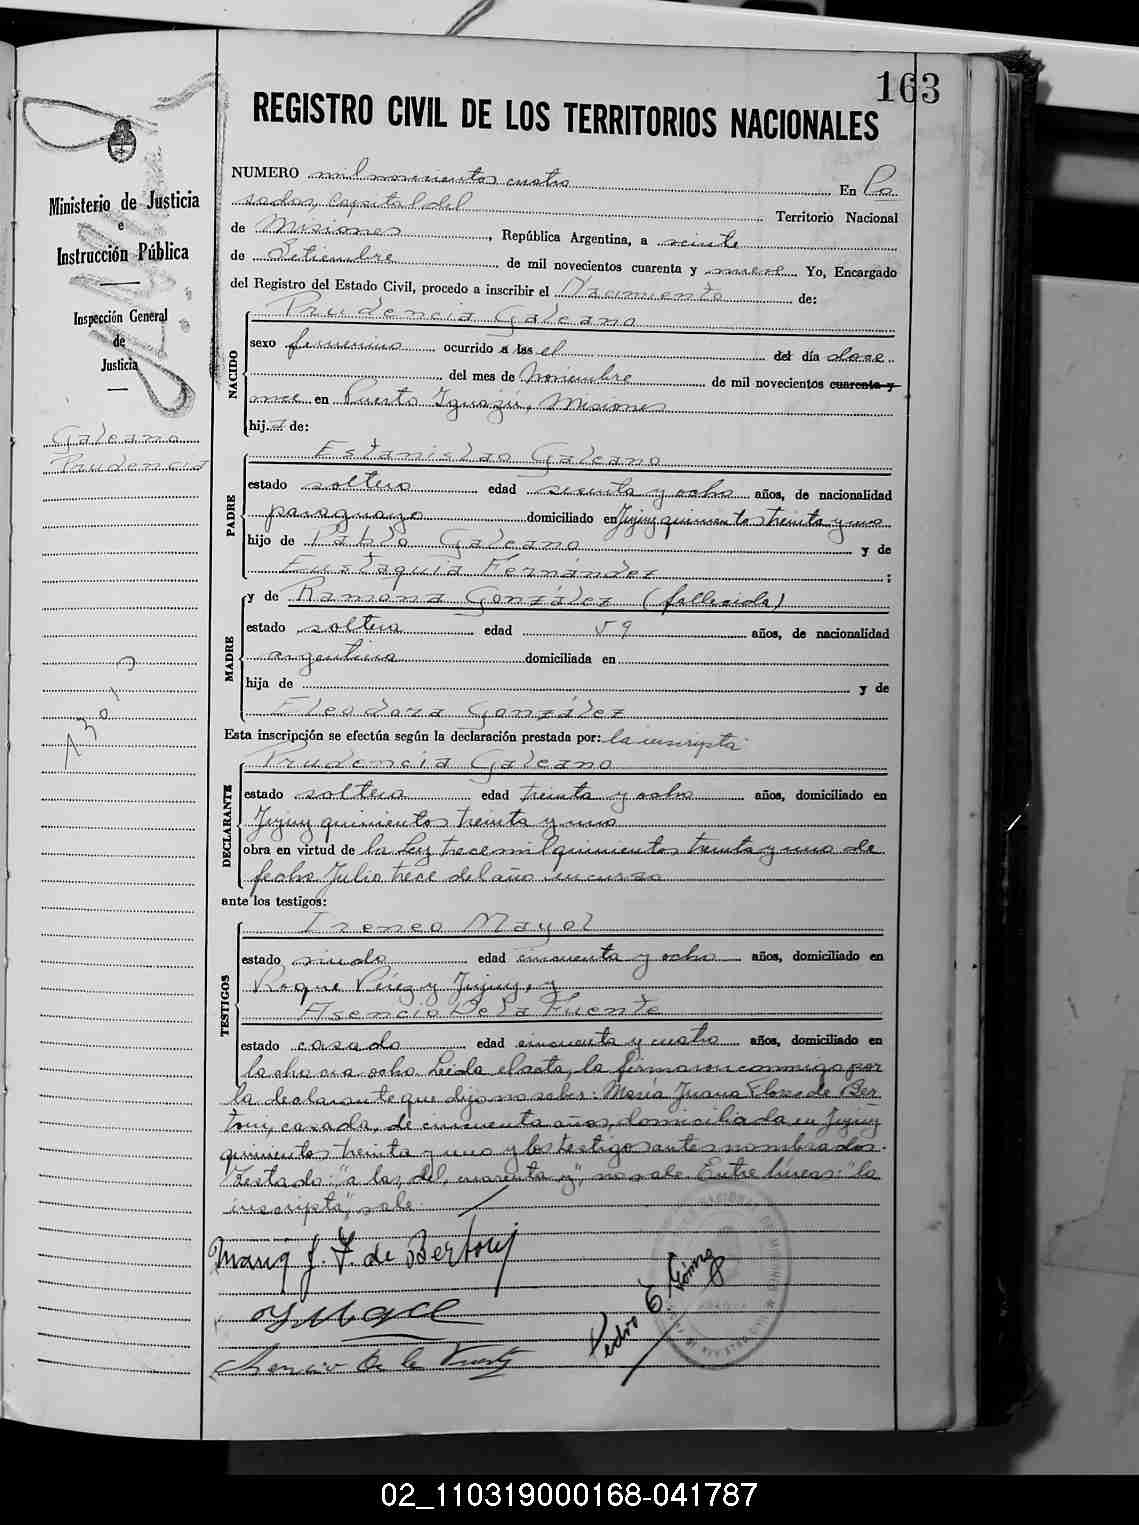 163
REGISTRO CIVIL DE LOS TERRITORIOS NACIONALES
Ministerio de Justicia
e
Instrucción Pública
Inspección General
de
Justicia
Galeano
Prudencia
NUMERO mil novecientos cuatro En Po
sadas, Capital del Territorio Nacional
de Misiones, República Argentina, a veinte
de Setiembre de mil novecientos cuarenta y nueve Yo, Encargado
del Registro del Estado Civil, procedo a inscribir el Nacimiento de:
Prudencia Galeano
NACIDO
sexo femenino ocurrido a las el del día doce
del mes de Noviembre de mil novecientos cuarenta y
once en Puerto Iguazú, Misiones
hija de:
Estanislao Galeano
PADRE
estado soltero edad sesenta y ocho años, de nacionalidad
paraguayo domiciliado en Jujuy quinientos treinta y uno
hijo de Pablo Galeano y de
Eustaquia Fernández;
y de Ramona González (fallecida)
MADRE
estado soltera edad 59 años, de nacionalidad
argentina domiciliada en
hija de y de
Eleodora González
Esta inscripción se efectúa según la declaración prestada por: la inscripta
Prudencia Galeano
DECLARANTE
estado soltera edad treinta y ocho años, domiciliado en
Jujuy quinientos treinta y uno
obra en virtud de la Ley trece mil quinientos treinta y uno de
fecha Julio trece del año en curso
ante los testigos:
Ireneo Mayol
TESTIGOS
estado viudo edad cincuenta y ocho años, domiciliado en
Roque Pérez y Jujuy, y
Asencio De la Fuente
estado casado edad cincuenta y cuatro años, domiciliado en
la chacra ocho Leída el acta, la firmaron conmigo por
la declarante que dijo no saber: María Juana Flores de Ber
toni, casada, de cincuenta años, domiciliada en Jujuy
quinientos treinta y uno y los testigos antes nombrados.
Testado: "a las, del, cuarenta y", no vale. Entre líneas: "la
inscripta", vale.
Maria J. F. de Bertoni
Pedro E. Gómez
Asencio de la Fuente
02_110319000168-041787